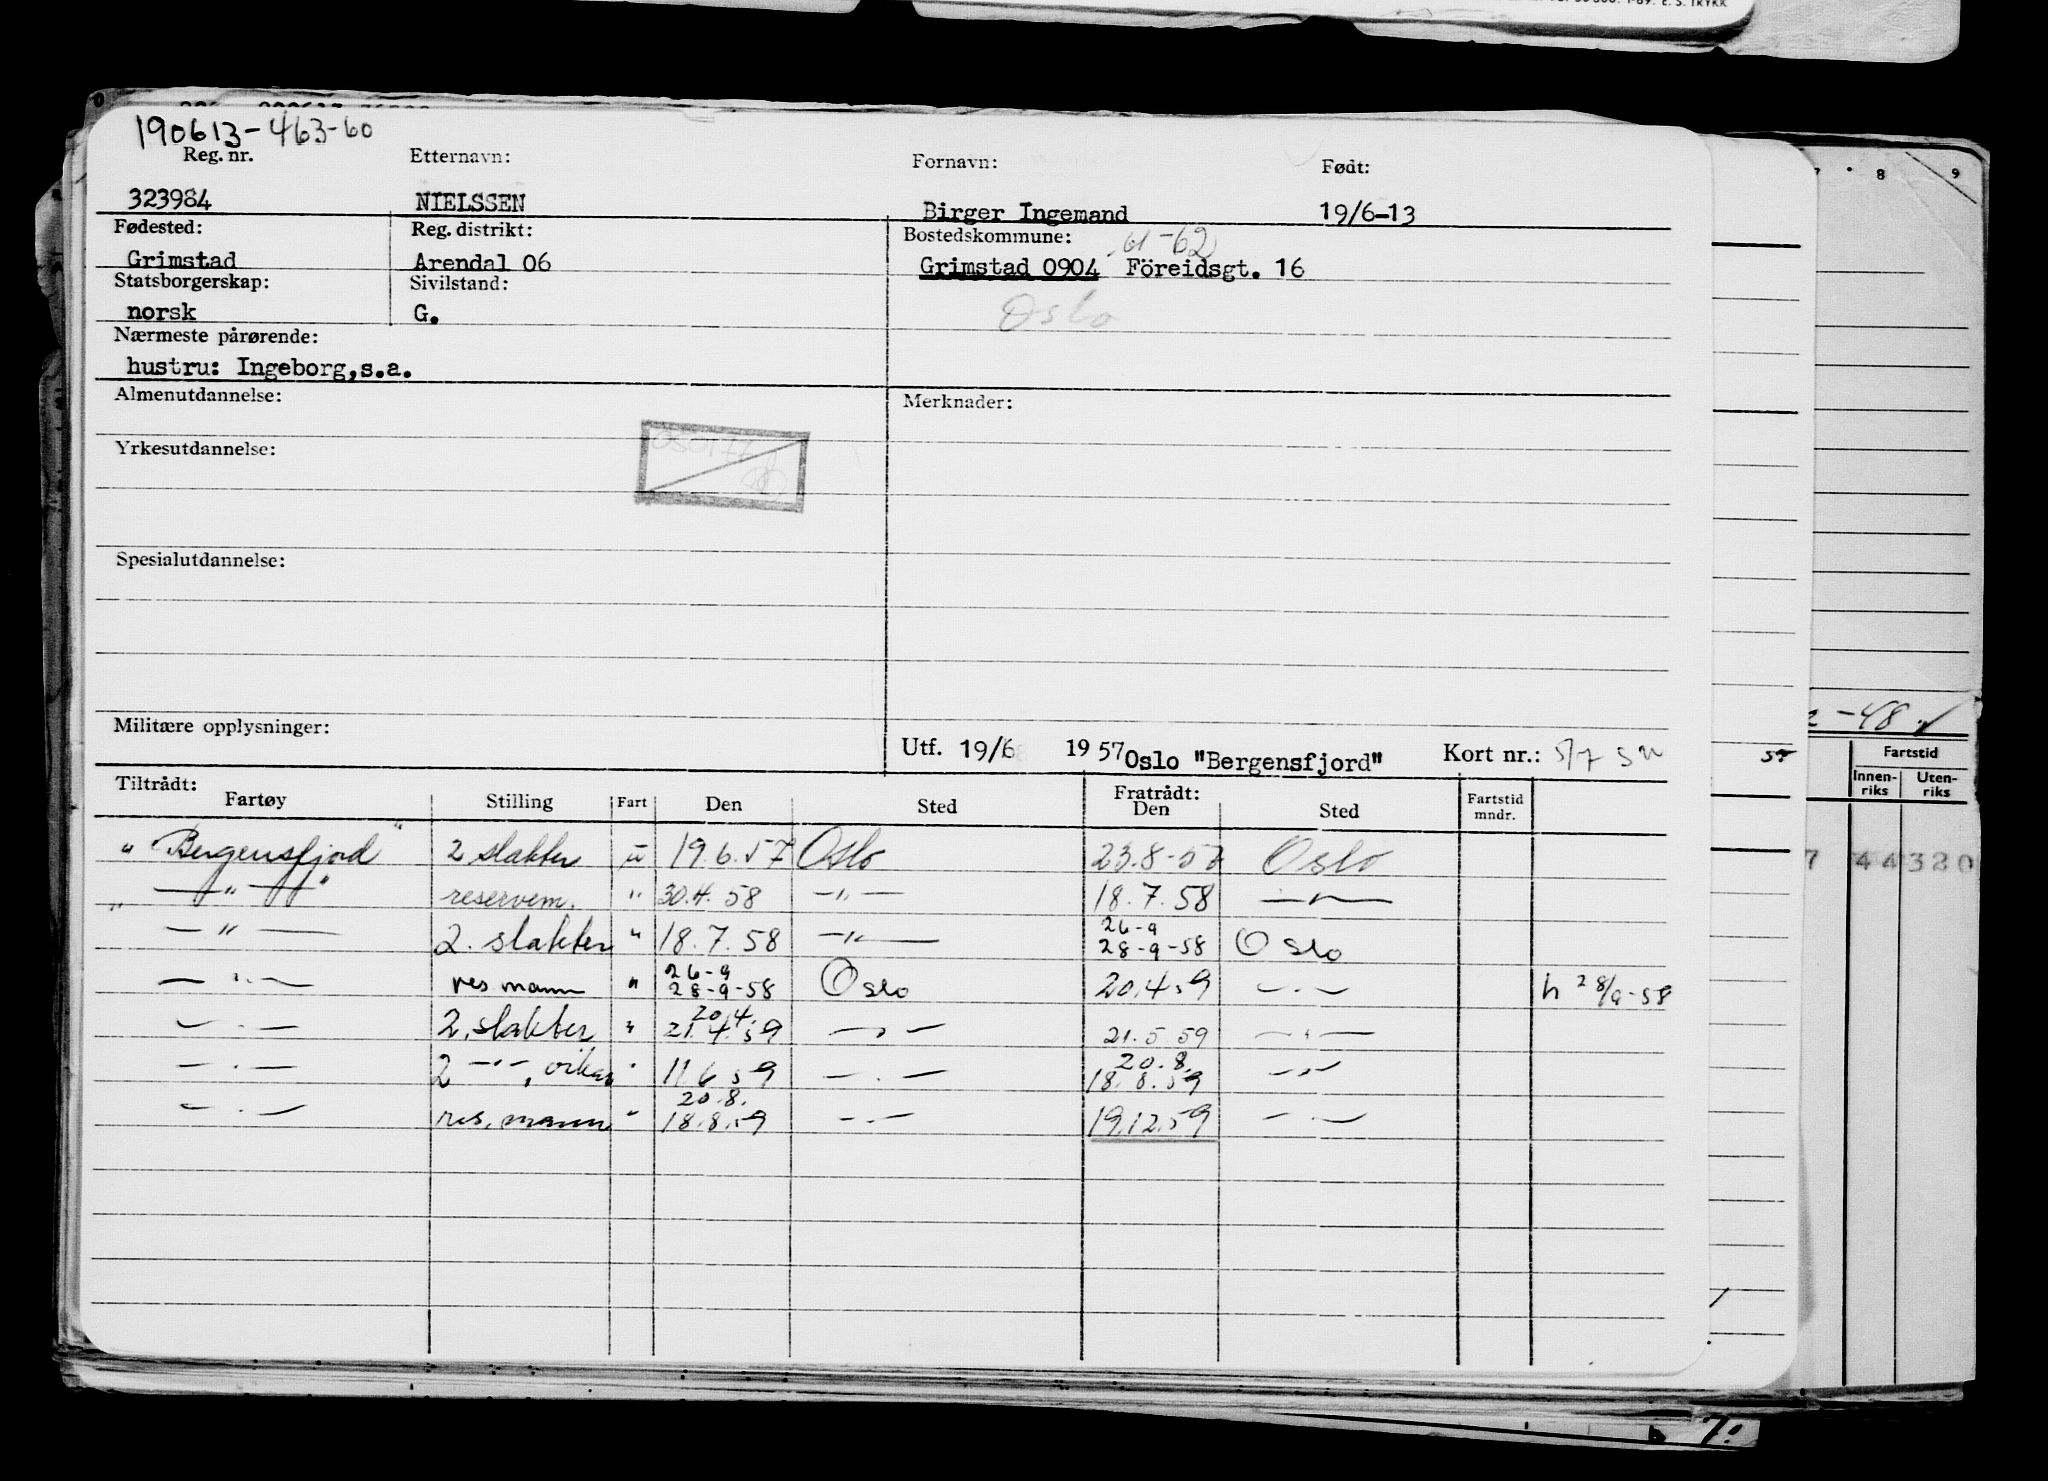 190613-463-60
Reg. nr. Etternavn: Fornavn: Født:
323984 NIELSSEN Birger Ingemand 19/6-13
Fødested: Reg. distrikt: Bostedskommune: 61-62
Grimstad Arendal 06 Grimstad 0904 Föreidsgt. 16
Statsborgerskap: Sivilstand:
norsk G. Oslo
Nærmeste pårørende:
hustru: Ingeborg,s.a.
Almenutdannelse: Merknader:
Yrkesutdannelse:
Spesialutdannelse:
Militære opplysninger:
Utf. 19/6 1957 Oslo "Bergensfjord" Kort nr.: 5/7
Tiltrådt: Fratrådt:
Fartøy Stilling Fart Den Sted Den Sted Fartstid mndr.
" Bergensfjord " 2 slakter u 19.6.57 Oslo 23.8-57 Oslo
" — " — " reservem. " 30.4.58 — " — 18.7.58 — " —
— " — 2. slakter " 18.7.58 — " — 26-9 28-9-58 Oslo
— " — res mann " 26-9 28-9-58 Oslo 20.4.59 — " — h 28/9-58
— " — 2. slakter " 20.4. 21.4.59 — " — 21.5.59 — " —
— " — 2 — " —, vikar " 11.6.59 — " — 20.8. 18.8.59 — " —
— " — res. mann " 20.8. 18.8.59 — " — 19.12.59 — " —
8 9
-48
Fartstid
Innen-riks Uten-riks
7 44 320
7.